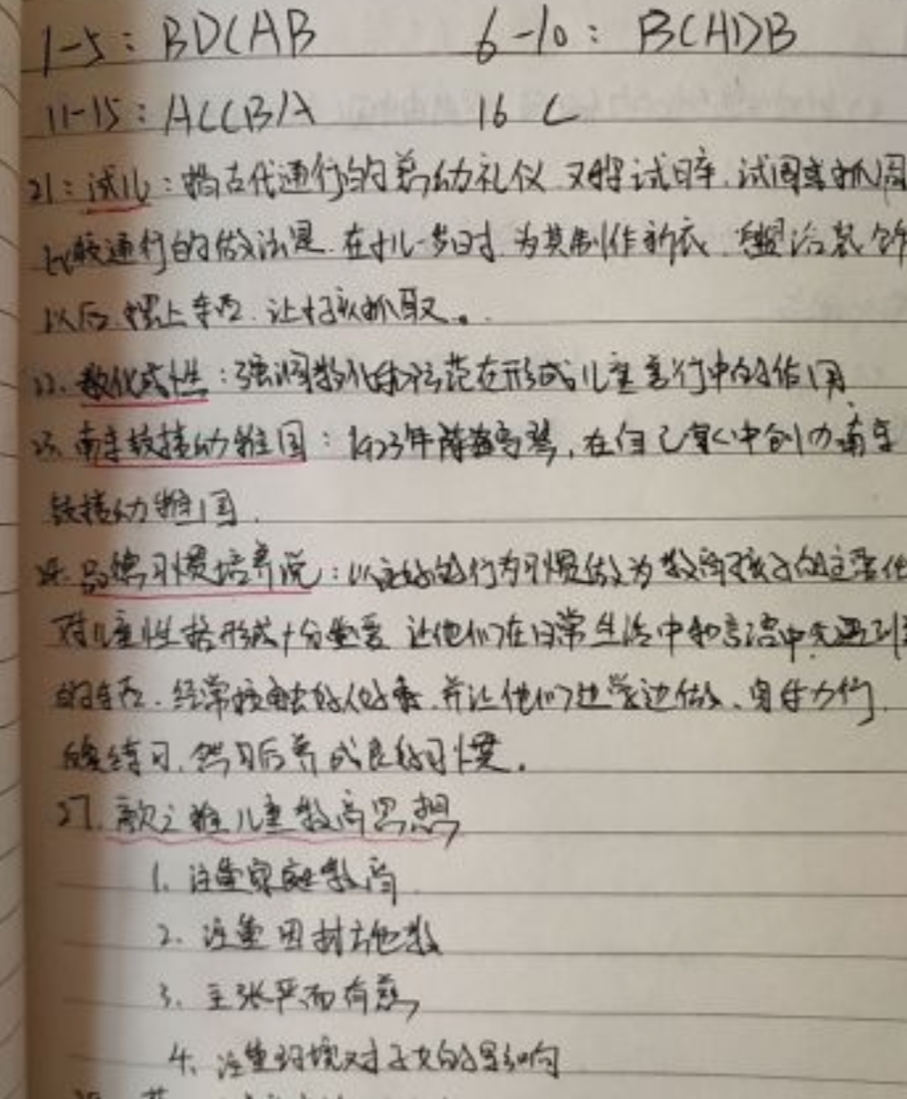 1-5: BDCAB 6-10: BCADB
11-15: ACCBA 16 C
21: 试儿: 指古代通行的养幼礼仪 又称试晬, 试周或抓周
比较通行的做法是, 在小儿一岁时, 为其制作新衣, 盥浴装饰
以后, 摆上东西, 让小孩抓取。
22. 教化成性: 强调教化和示范在形成儿童言行中的作用
23. 南京鼓楼幼稚园: 1923年陈鹤琴, 在自己家中创办南京
鼓楼幼稚园.
24. 品德习惯培养说: 以良好的行为习惯做为教育孩子的主要
对儿童性格形成十分重要 让他们在日常生活中和言语中
的东西. 经常接触好人好事, 并让他们边学边做、身体力行,
练习, 然后养成良好习惯。
27. 颜之推儿童教育思想
1. 注重家庭教育
2. 注重因材施教
3. 主张严而有慈
4. 注重环境对子女的影响